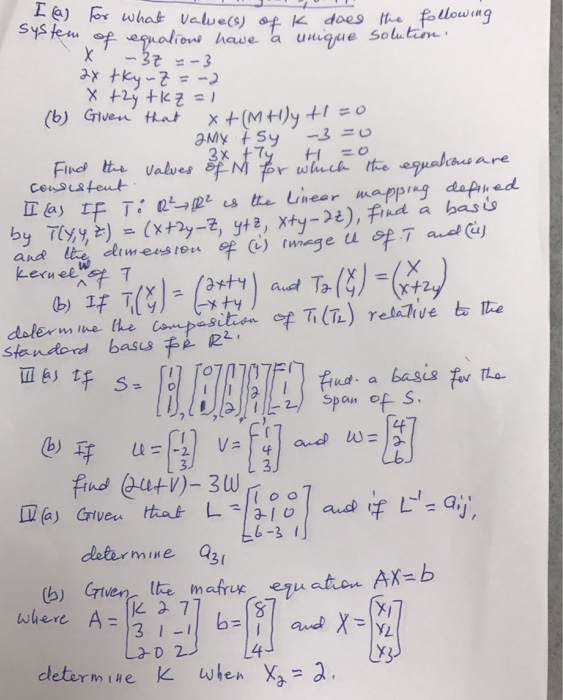 I (a) For what value(s) of K does the following
system of equations have a unique solution.
x - 3z = -3
2x + ky - z = -2
x + 2y + kz = 1
(b) Given that x + (M+1)y + 1 = 0
2Mx + 5y - 3 = 0
3x + 7y + 1 = 0
Find the values of M for which the equations are
consistent.
II (a) If T: R² → R² is the Linear mapping defined
by T(x, y, z) = (x+2y-z, y+z, x+y-2z), find a basis
and the dimension of (i) image U of T and (ii)
kernel W of T
(b) If T₁(x y) = (2x+y -x+y) and T₂(x y) = (x x+2y)
determine the composition of T₁(T₂) relative to the
standard basis for R².
III (a) If S = [1 0 1], [0 1 1], [1 1 2], [1 2 1], [-1 1 -2] find a basis for the
span of S.
(b) If u = [1 -2 3] V = [-1 4 3] and W = [4 2 6]
find (2u+v) - 3W
IV (a) Given that L = [1 0 0 2 1 0 6 -3 1] and if L⁻¹ = aij,
determine a₃₁
(b) Given the matrix equation AX=b
where A = [K 2 7 3 1 -1 2 0 2] b = [8 1 4] and X = [x₁ x₂ x₃]
determine K when X₂ = 2.